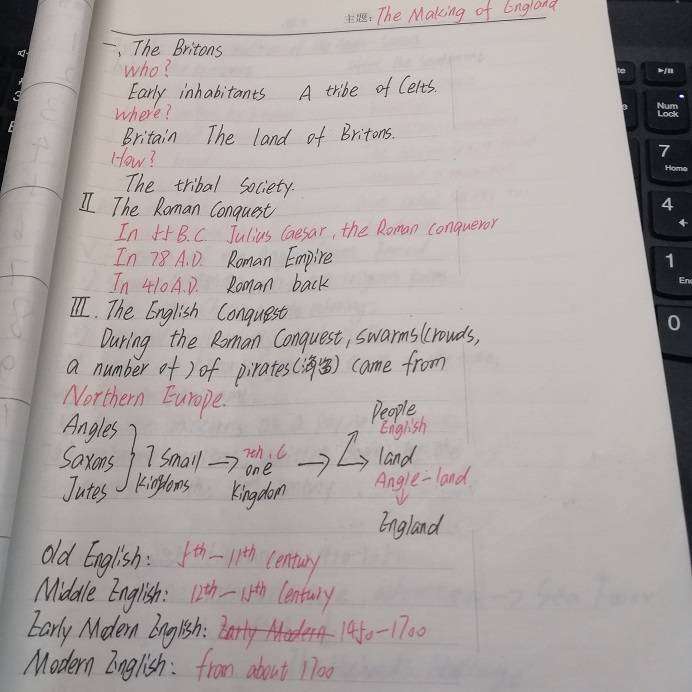 主题: The Making of England
一、The Britons
Who?
Early inhabitants A tribe of Celts.
Where?
Britain The land of Britons.
How?
The tribal Society.
II The Roman Conquest
In 55 B.C Julius Caesar, the Roman conqueror
In 78 A.D. Roman Empire
In 410 A.D. Roman back
III. The English Conquest
During the Roman Conquest, swarms (crowds,
a number of) of pirates(海盗) came from
Northern Europe.
Angles
Saxons
Jutes
7 Small
Kingdoms
7th. C
one
Kingdom
People
English
land
Angle-land.
England
Old English: 5th-11th Century
Middle English: 12th-15th Century
Early Modern English: Early Modern 1450-1700
Modern English: from about 1700
Num
Lock
7
Home
4
1
0